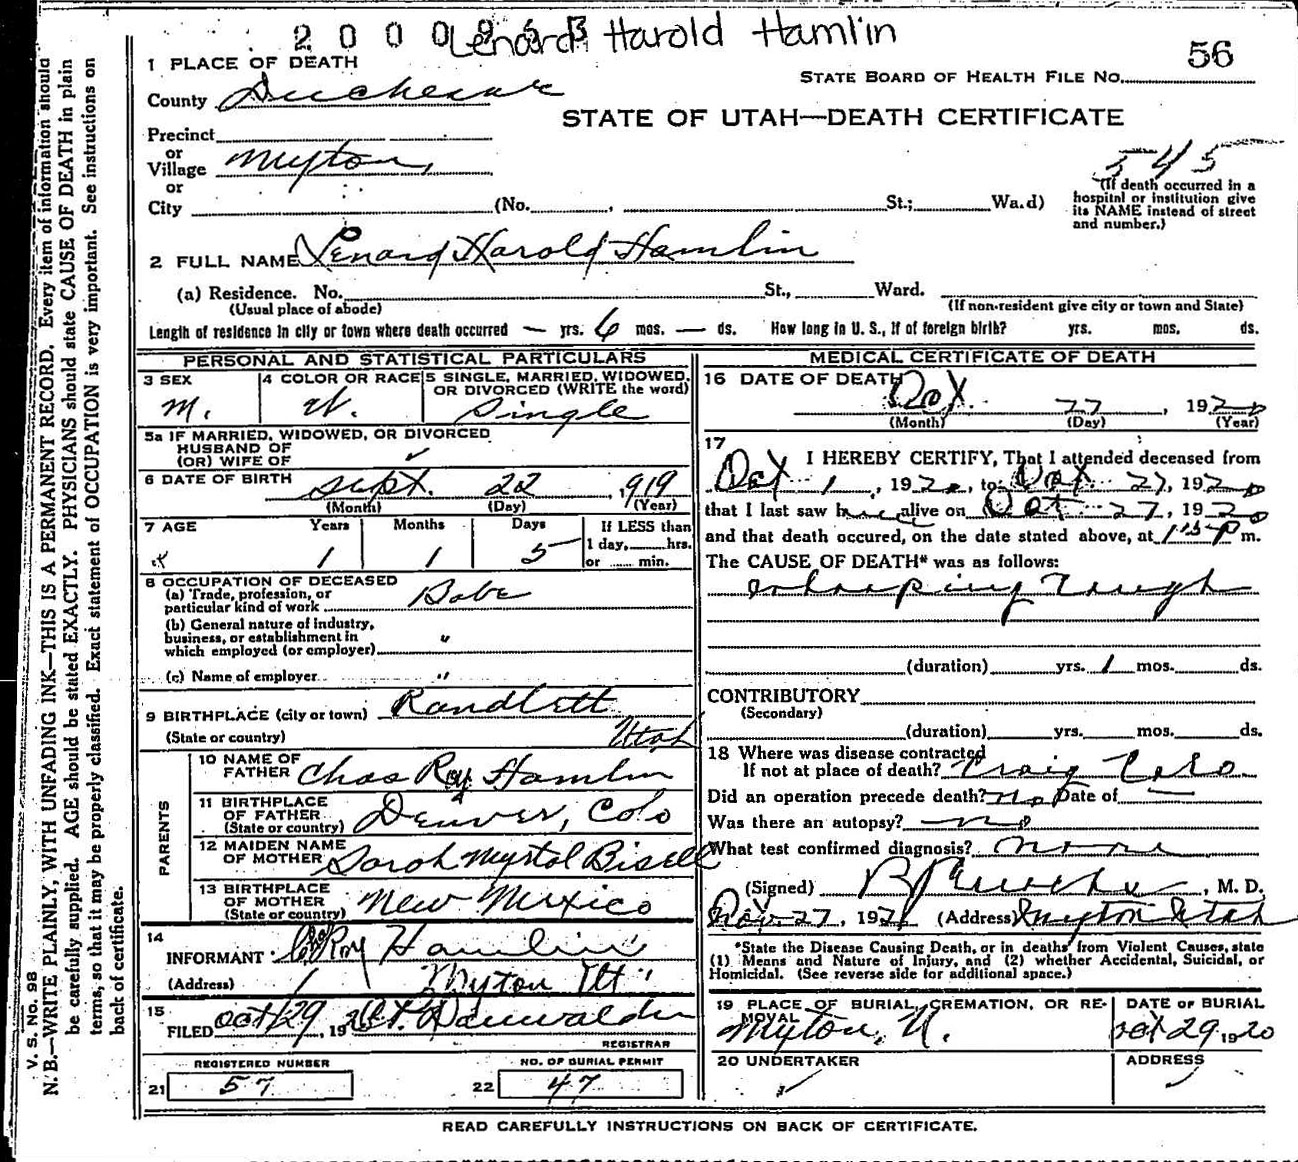 Lenard Harold Hamlin
56
1 PLACE OF DEATH
STATE BOARD OF HEALTH FILE No.
County Duchesne
STATE OF UTAH—DEATH CERTIFICATE
Precinct
or
Village Myton,
545
or
City (No. , St.; Ward)
(If death occurred in a
hospital or institution give
its NAME instead of street
and number.)
2 FULL NAME Lenard Harold Hamlin
(a) Residence. No. St., Ward.
(Usual place of abode) (If non-resident give city or town and State)
Length of residence in city or town where death occurred — yrs. 6 mos. — ds. How long in U. S., if of foreign birth? yrs. mos. ds.
PERSONAL AND STATISTICAL PARTICULARS
3 SEX
M.
4 COLOR OR RACE
W.
5 SINGLE, MARRIED, WIDOWED,
OR DIVORCED (WRITE the word)
Single
5a IF MARRIED, WIDOWED, OR DIVORCED
HUSBAND OF
(OR) WIFE OF
6 DATE OF BIRTH Sept. 22, 1919
(Month) (Day) (Year)
7 AGE Years Months Days If LESS than
1 day, hrs.
1 1 5 or min.
8 OCCUPATION OF DECEASED
(a) Trade, profession, or
particular kind of work Babe
(b) General nature of industry,
business, or establishment in
which employed (or employer) "
(c) Name of employer "
9 BIRTHPLACE (city or town) Randlett
(State or country) Utah
PARENTS
10 NAME OF
FATHER Chas Roy Hamlin
11 BIRTHPLACE
OF FATHER
(State or country) Denver, Colo
12 MAIDEN NAME
OF MOTHER Sarah Myrtal Bisell
13 BIRTHPLACE
OF MOTHER
(State or country) New Mexico
14
INFORMANT Roy Hamlin
(Address) Myton Ut
15
FILED Oct 29, 19
REGISTRAR
REGISTERED NUMBER
21 57
NO. OF BURIAL PERMIT
22 47
MEDICAL CERTIFICATE OF DEATH
16 DATE OF DEATH
Oct 27, 1920
(Month) (Day) (Year)
17
I HEREBY CERTIFY, That I attended deceased from
Oct 1, 1920, to Oct 27, 1920
that I last saw h alive on Oct 27, 1920
and that death occured, on the date stated above, at m.
The CAUSE OF DEATH* was as follows:
Whooping Cough
(duration) yrs. 1 mos. ds.
CONTRIBUTORY
(Secondary)
(duration) yrs. mos. ds.
18 Where was disease contracted
If not at place of death? Craig Colo.
Did an operation precede death? no Date of —
Was there an autopsy? no
What test confirmed diagnosis? none
(Signed) , M. D.
Nov 27, 192 (Address) Myton Utah
*State the Disease Causing Death, or in deaths from Violent Causes, state
(1) Means and Nature of Injury, and (2) whether Accidental, Suicidal, or
Homicidal. (See reverse side for additional space.)
19 PLACE OF BURIAL, CREMATION, OR RE-
MOVAL
Myton, U.
DATE OF BURIAL
Oct 29, 1920
20 UNDERTAKER
ADDRESS
READ CAREFULLY INSTRUCTIONS ON BACK OF CERTIFICATE.
V. S. No. 98
N. B.—WRITE PLAINLY, WITH UNFADING INK—THIS IS A PERMANENT RECORD. Every item of information should
be carefully supplied. AGE should be stated EXACTLY. PHYSICIANS should state CAUSE OF DEATH in plain
terms, so that it may be properly classified. Exact statement of OCCUPATION is very important. See instructions on
back of certificate.